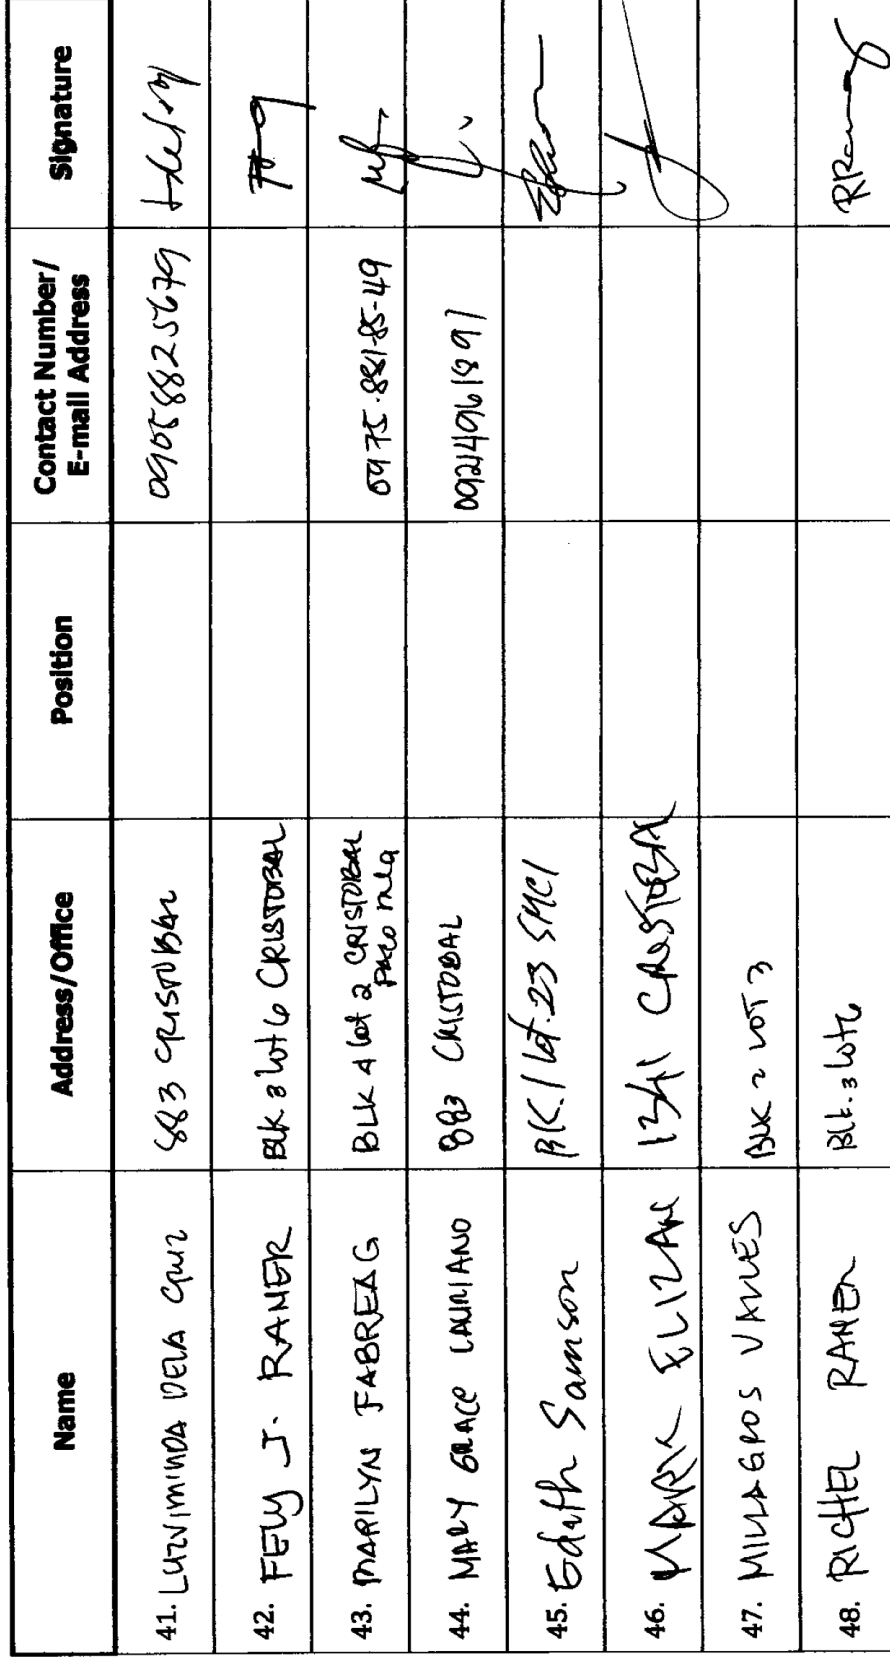 Name Address/Office Position Contact Number/ E-mail Address Signature
41. LUZVIMINDA DELA CRUZ 883 CRISTOBAL 09058825679
42. FELY J. RANER BLK 3 Lot 6 CRISTOBAL
43. MARILYN FABREAG BLK 4 lot 2 CRISTOBAL 0975-881-85-49
PACO mla
44. MARY GRACE LAURIANO 883 CRISTOBAL 09214961891
45. Edith Samson BLK.1 lot.23 SMCI
46. MARK ELIZAN 1341 CRISTOBAL
47. MILLAGROS VALLES BLK 2 LOT 3
48. RICHEL RANER BLK.3 Lot 6